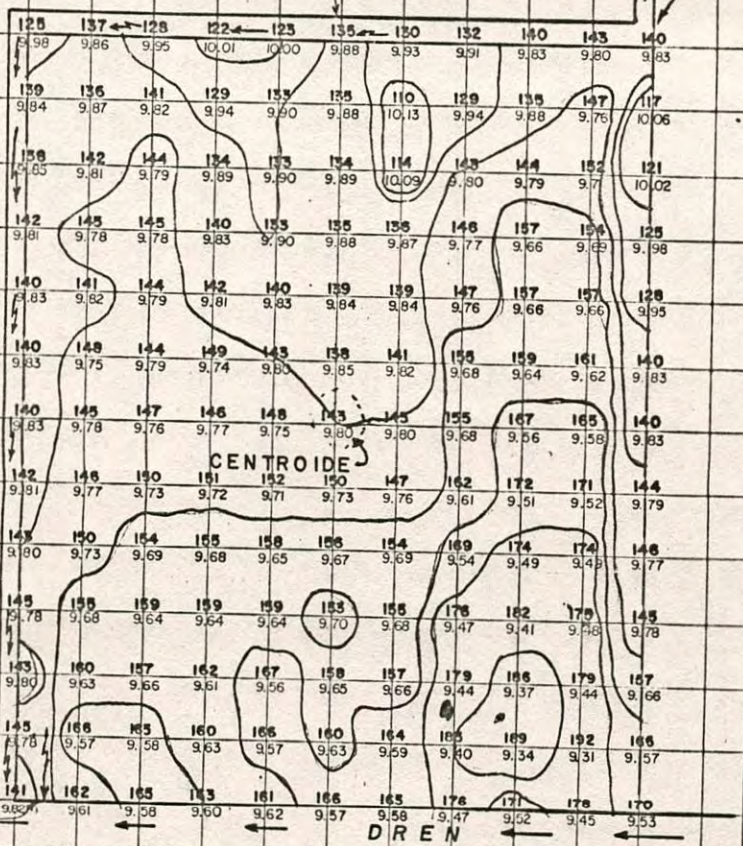 125 137 128 122 123 135 130 132 140 143 140
9.98 9.86 9.95 10.01 10.00 9.88 9.93 9.91 9.83 9.80 9.83
139 136 141 129 133 135 110 129 135 147 117
9.84 9.87 9.82 9.94 9.90 9.88 10.13 9.94 9.88 9.76 10.06
138 142 144 134 133 134 114 143 144 152 121
9.85 9.81 9.79 9.89 9.90 9.89 10.09 9.80 9.79 9.7 10.02
142 145 145 140 133 135 136 146 157 154 125
9.81 9.78 9.78 9.83 9.90 9.88 9.87 9.77 9.66 9.69 9.98
140 141 144 142 140 139 139 147 157 157 128
9.83 9.82 9.79 9.81 9.83 9.84 9.84 9.76 9.66 9.66 9.95
140 148 144 149 143 138 141 155 159 161 140
9.83 9.75 9.79 9.74 9.80 9.85 9.82 9.68 9.64 9.62 9.83
140 145 147 146 148 143 143 155 167 165 140
9.83 9.78 9.76 9.77 9.75 9.80 9.80 9.68 9.56 9.58 9.83
CENTROIDE
142 146 150 151 152 150 147 162 172 171 144
9.81 9.77 9.73 9.72 9.71 9.73 9.76 9.61 9.51 9.52 9.79
143 150 154 155 158 156 154 169 174 174 146
9.80 9.73 9.69 9.68 9.65 9.67 9.69 9.54 9.49 9.49 9.77
145 155 159 159 159 153 155 176 182 175 145
9.78 9.68 9.64 9.64 9.64 9.70 9.68 9.47 9.41 9.48 9.78
143 160 157 162 167 158 157 179 186 179 157
9.80 9.63 9.66 9.61 9.56 9.65 9.66 9.44 9.37 9.44 9.66
145 166 165 160 166 160 164 183 189 192 166
9.78 9.57 9.58 9.63 9.57 9.63 9.59 9.40 9.34 9.31 9.57
141 162 165 163 161 166 165 176 171 178 170
9.82 9.61 9.58 9.60 9.62 9.57 9.58 9.47 9.52 9.45 9.53
DREN